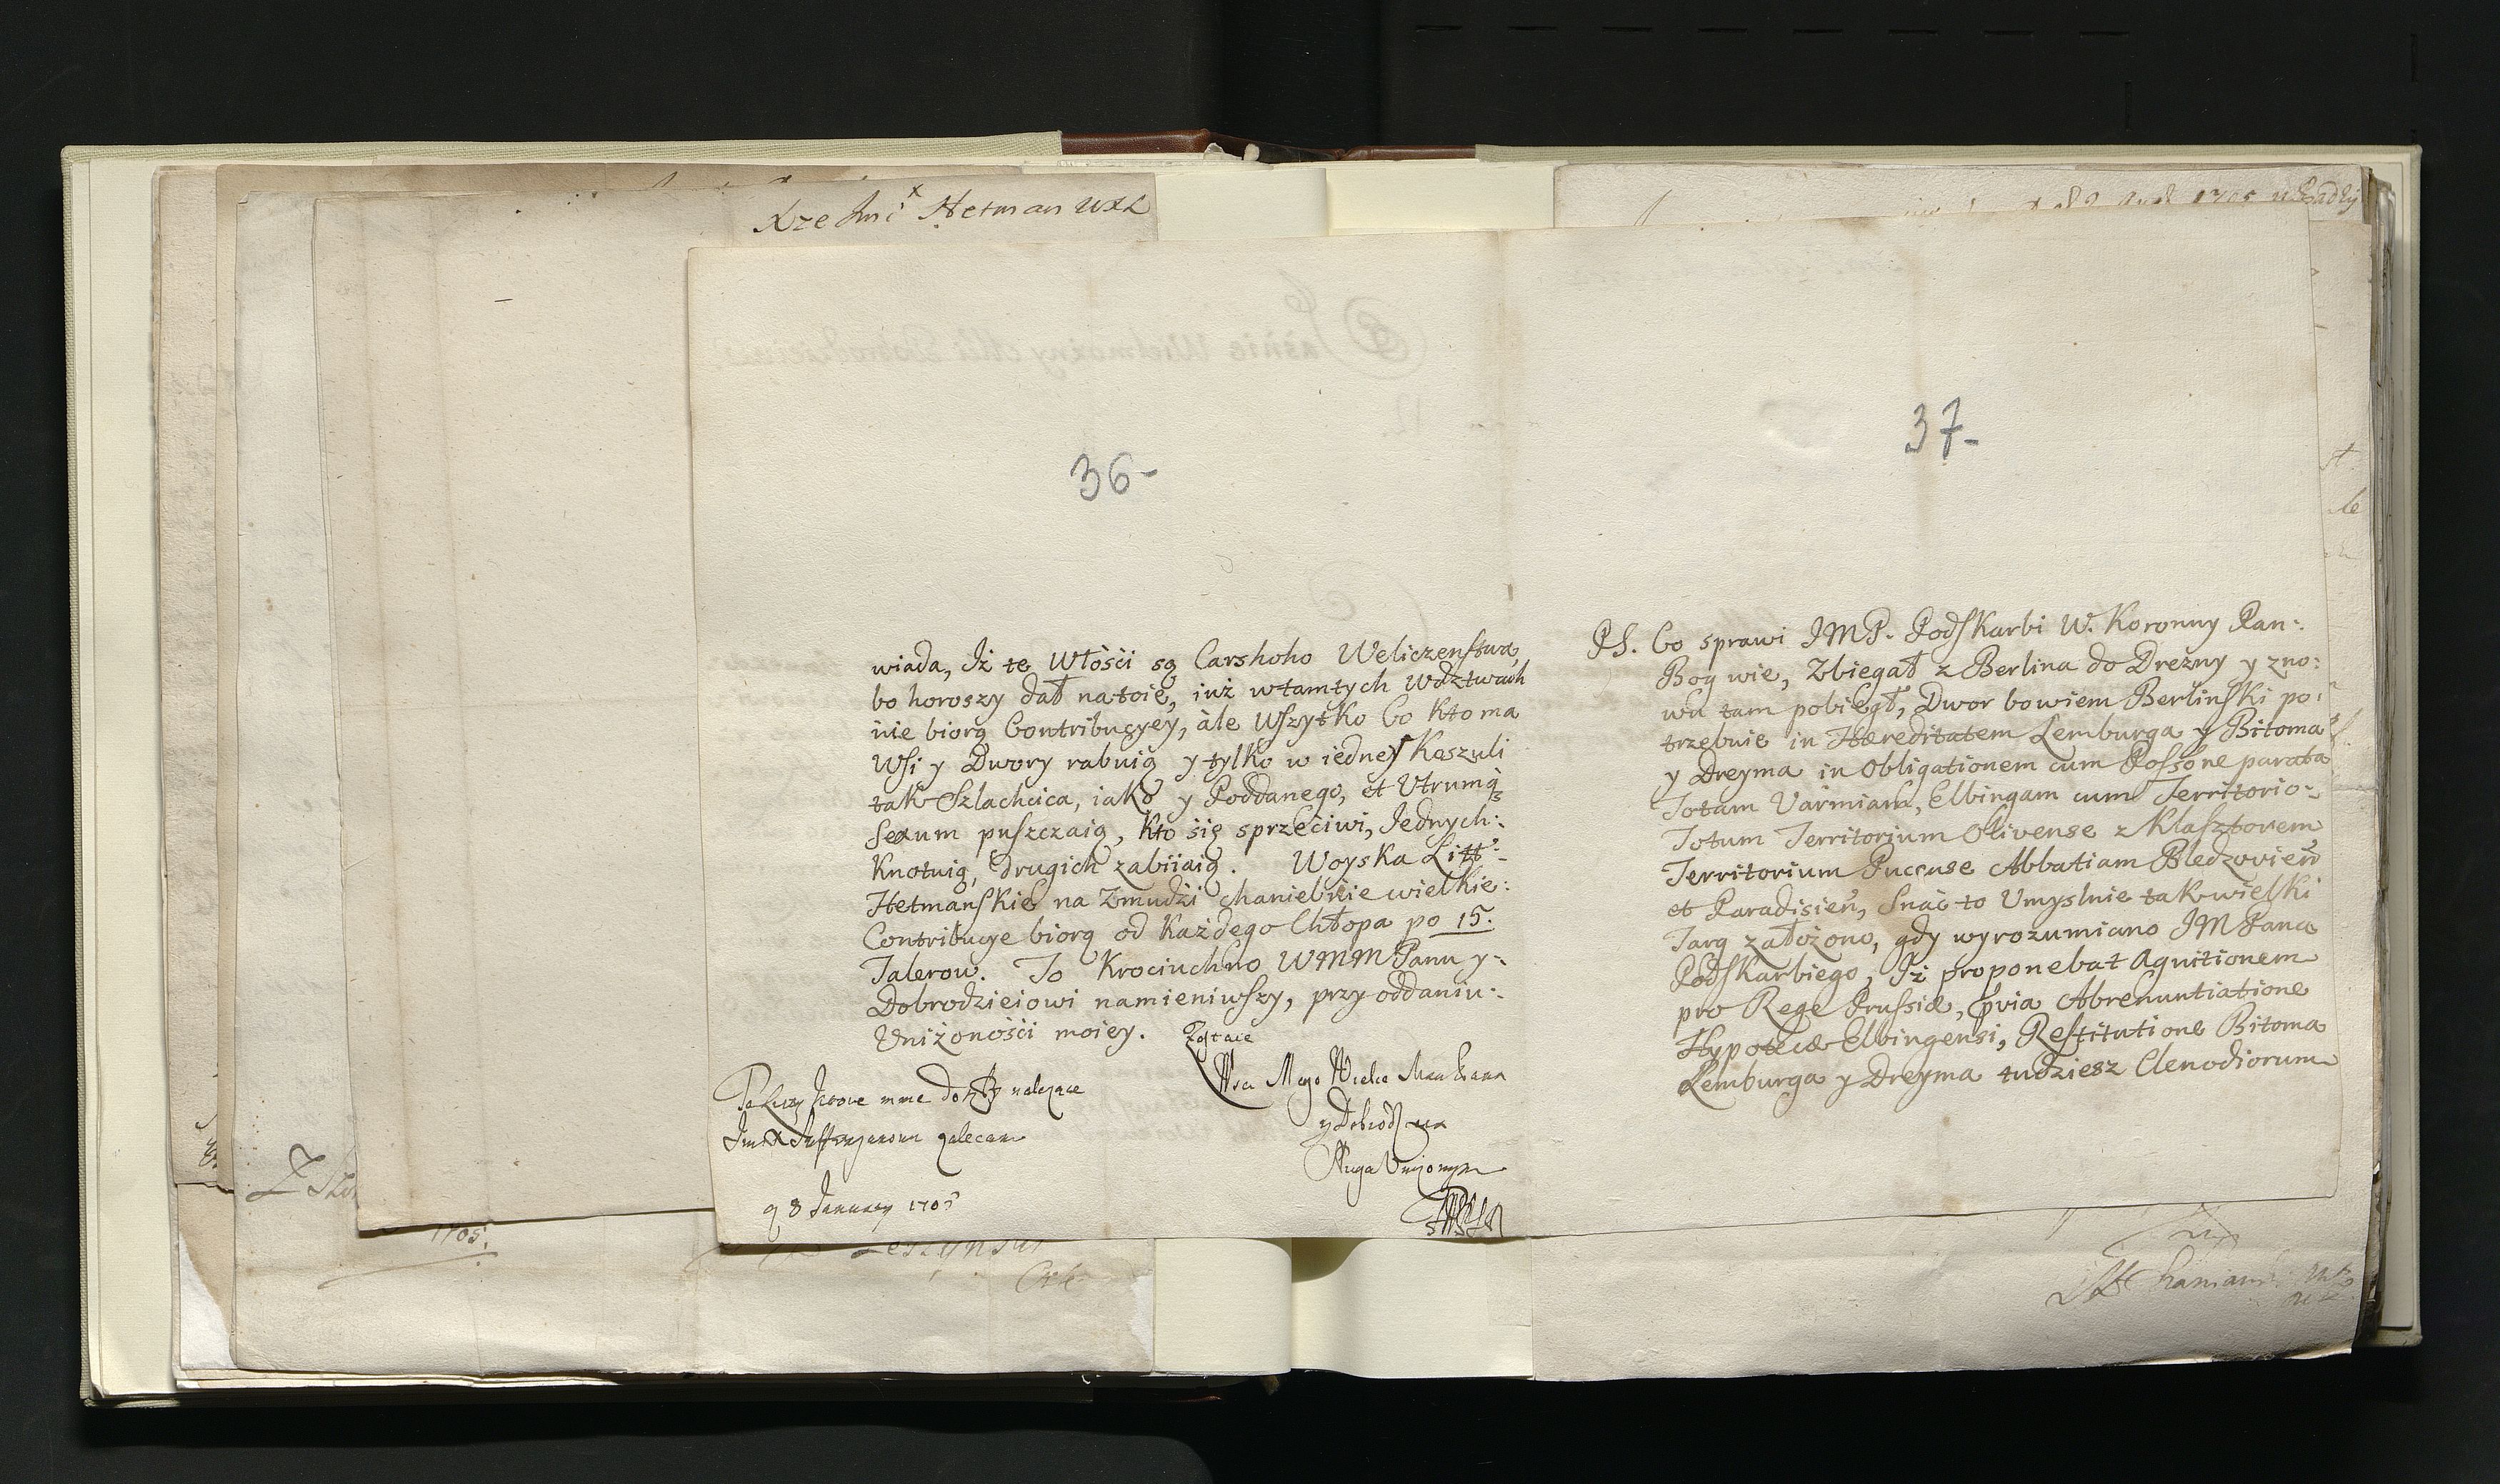 Xże Imć Hetman WXL
36-
wiada, Iż te Włośći są Carshoho Weliczenstwa,
bo horoszy dał natoie, iuż wtamtych Wdztwach
nie biorą Contribucyey, ále Wszytko Co Kto ma
Wsi y Dwory rabuią y tylko w iedney Koszuli
tak Szlachcica, iako y Poddanego, et Utrumq3
Sexum puszczaią, Kto się sprzećiwi, Jednych:
Knotuią, drugich zabiiaią. Woyska Litt:
Hetmanskie na Zmudźi chaniebnie wielkie:
Contribucye biorą od Każdego Chłopa po 15.
Talerow. To Krociuchno WMM Panu y:
Dobrodzieiowi namieniwszy, przy oddaniu:
Uniżonośći moiey. Zostaie
Mego Wielce
y
Sługa Uniżonym
nalezące
zalecam
8 January 1705
37-
PS. Co sprawi JMP. Podskarbi W. Koronny Pan:
Bog wie, Zbiegał z Berlina do Drezny y zno:
wu tam pobiegł, Dwor bowiem Berlinski po:
trzebuie in Hæreditatem Lemburga y Bitoma
y Dreyma in Obligationem cum Possone parata
Totam Varmiam, Elbingam cum Territorio:
Totum Territorium Olivense z Klasztorem
Territorium Puccuse Abbatiam Bledzovień
et Paradisień, Snáć to Umyslnie tak wielki
Targ założono, gdy wyrozumiano JM Pana
Podskarbiego, Iż proponebat Agnitionem
pro Rege Prussiæ, pvia Abrenuntiatione
Hypotecæ Elbingensi, Restitutione Bitoma
Lemburga y Dreyma tudziesz Clenodiorum
1705.